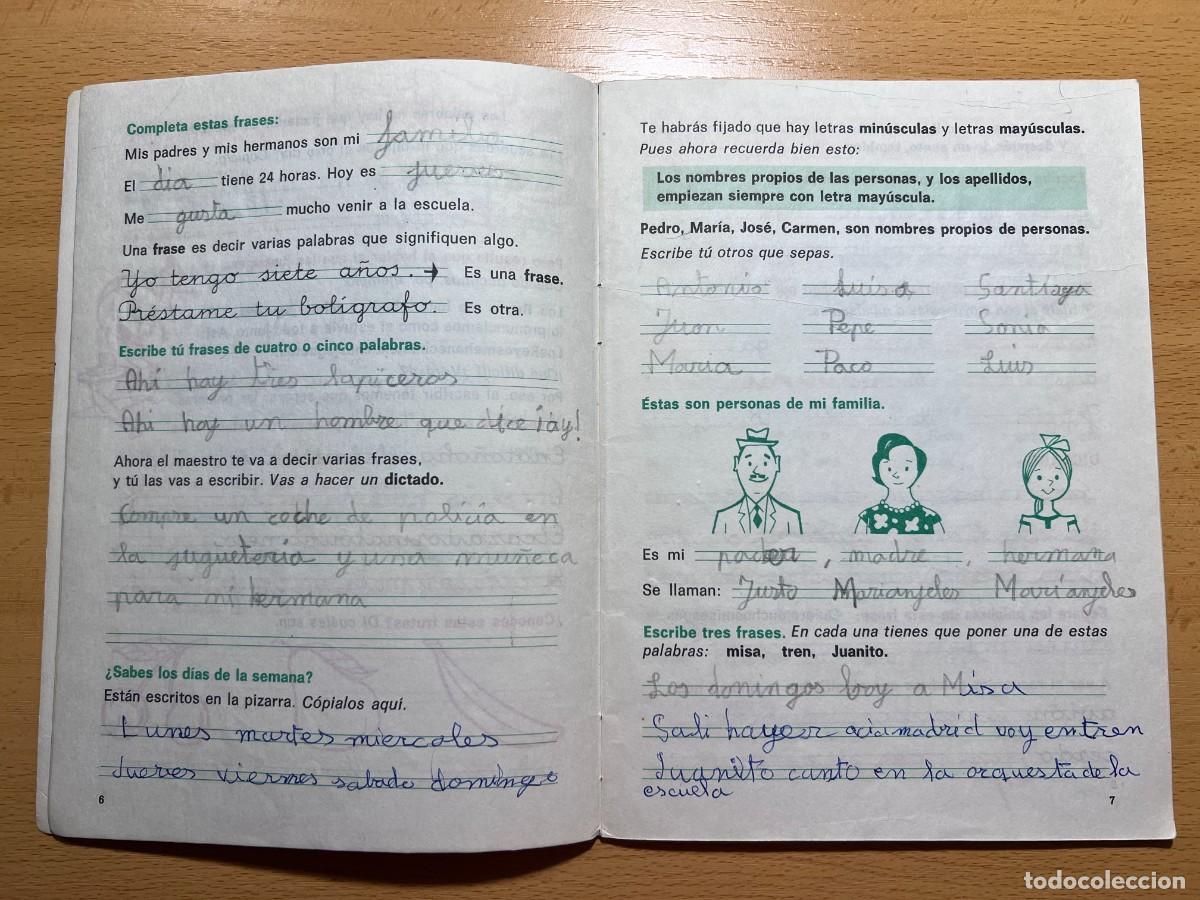 Completa estas frases:
Mis padres y mis hermanos son mi familia
El dia tiene 24 horas. Hoy es jueves
Me gusta mucho venir a la escuela.
Una frase es decir varias palabras que signifiquen algo.
Yo tengo siete años. → Es una frase.
Préstame tu bolígrafo. Es otra.
Escribe tú frases de cuatro o cinco palabras.
Ahí hay tres lapiceros
Ahi hay un hombre que dice ¡ay!
Ahora el maestro te va a decir varias frases,
y tú las vas a escribir. Vas a hacer un dictado.
Compre un coche de policía en
la juguetería y una muñeca
para mi hermana
¿Sabes los días de la semana?
Están escritos en la pizarra. Cópialos aquí.
Lunes martes miercoles
Jueves viernes sabado domingo
6
Te habrás fijado que hay letras minúsculas y letras mayúsculas.
Pues ahora recuerda bien esto:
Los nombres propios de las personas, y los apellidos,
empiezan siempre con letra mayúscula.
Pedro, María, José, Carmen, son nombres propios de personas.
Escribe tú otros que sepas.
Antonio Luisa Santiago
Juan Pepe Sonia
Maria Paco Luis
Éstas son personas de mi familia.
Es mi , madre , hermana
Se llaman: Justo Marianjeles Maríanjeles
Escribe tres frases. En cada una tienes que poner una de estas
palabras: misa, tren, Juanito.
Los domingos boy a Misa
Sali hayer acia madrid voy entren
Juanito canto en la orquesta de la
escuela
7
todocoleccion